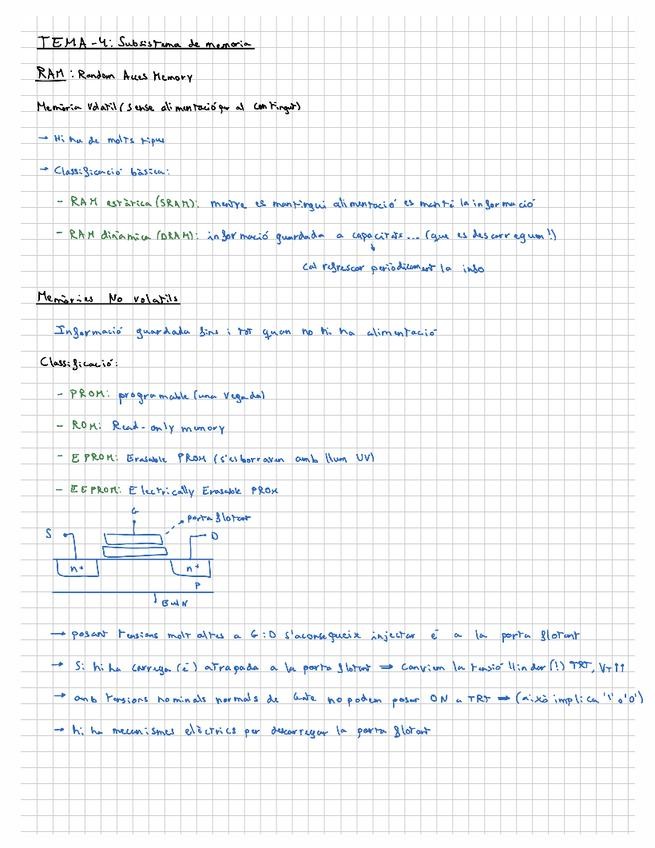 TEMA-4: Subsistema de memoria
RAM: Random Acces Memory
Memòria Volatil (sense alimentació per al contingut)
→ Hi ha de molts tipus
→ Classificació bàsica:
- RAM estàtica (SRAM): mentre es mantingui alimentació es manté la informació
- RAM dinàmica (DRAM): informació guardada a capacitats... (que es descarreguen!)
Cal refrescar periòdicament la info
Memòries No volatils
Informació guardada fins i tot quan no hi ha alimentació
Classificació:
- PROM: programable (una vegada)
- ROM: Read-only memory
- EPROM: Erasable PROM (s'esborraven amb llum UV)
- EEPROM: Electrically Erasable PROM
G
porta flotant
S
D
n+
n+
P
BULK
→ posant tensions molt altes a G i D s'aconsegueix injectar e⁻ a la porta flotant
→ Si hi ha càrrega (e⁻) atrapada a la porta flotant ⇒ canviem la tensió llindar (!) TRT, VT↑↑
→ amb tensions nominals normals de Gate no podem posar ON a TRT ⇒ (això implica '1' o '0')
→ hi ha mecanismes elèctrics per descarregar la porta flotant